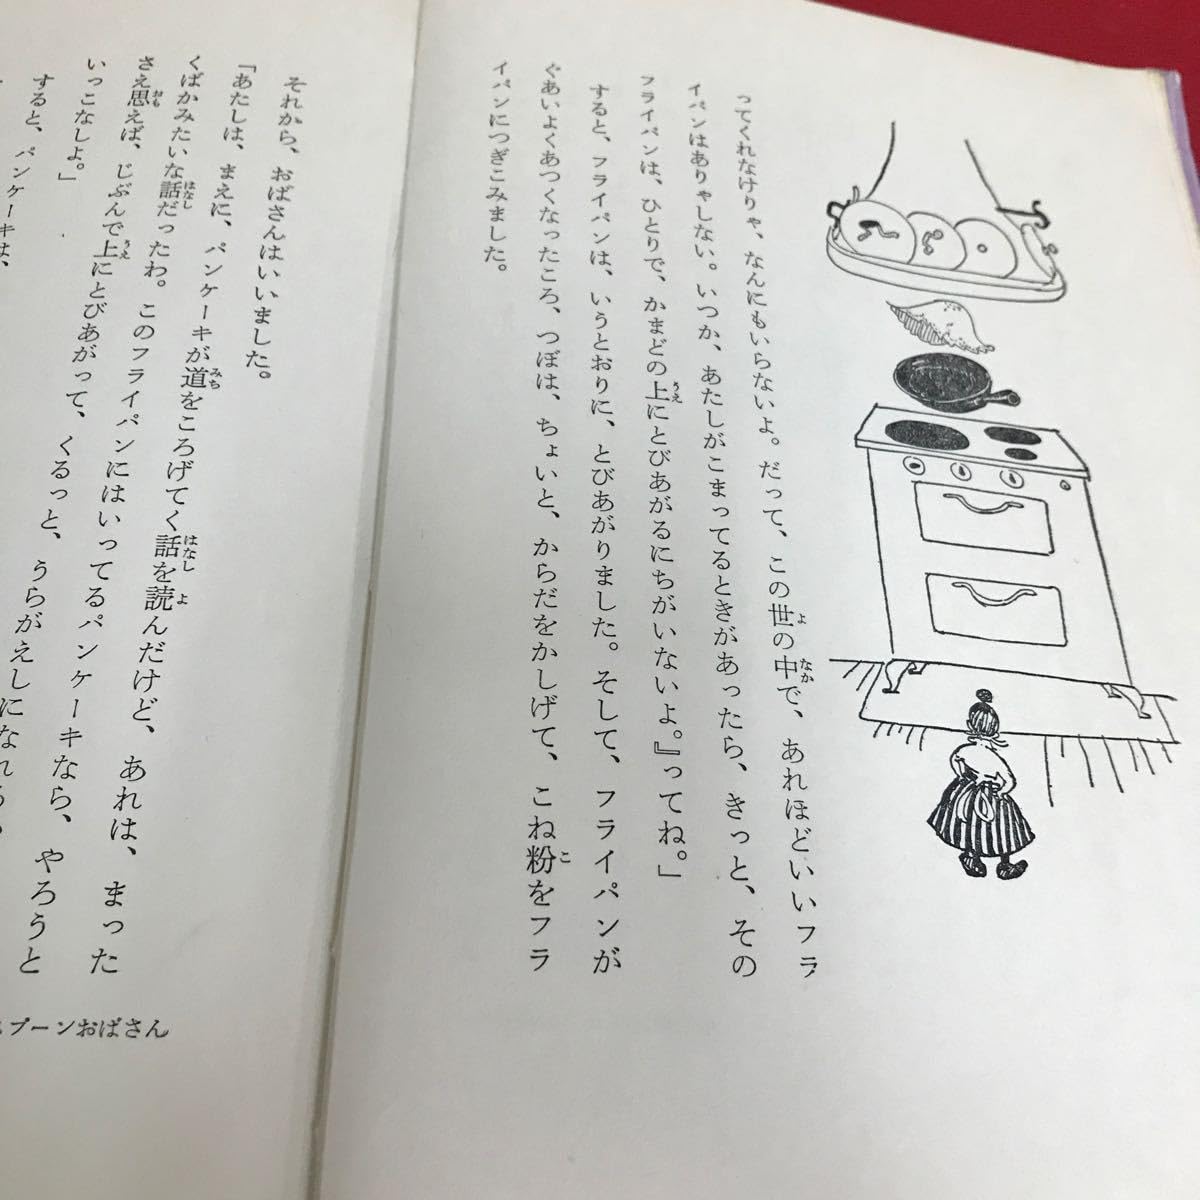 ってくれなけりゃ、なんにもいらないよ。だって、この世の中で、あれほどいいフラ
イパンはありゃしない。いつか、あたしがこまってるときがあったら、きっと、その
フライパンは、ひとりで、かまどの上にとびあがるにちがいないよ。』ってね。」
すると、フライパンは、いうとおりに、とびあがりました。そして、フライパンが
ぐあいよくあつくなったころ、つぼは、ちょいと、からだをかしげて、こね粉をフラ
イパンにつぎこみました。
それから、おばさんはいいました。
「あたしは、まえに、パンケーキが道をころげてく話を読んだけど、あれは、まった
くばかみたいな話だったわ。このフライパンにはいってるパンケーキなら、やろうと
さえ思えば、じぶんで上にとびあがって、くるっと、うらがえしになれる
いっこなしよ。」
すると、パンケーキは、
プーンおばさん